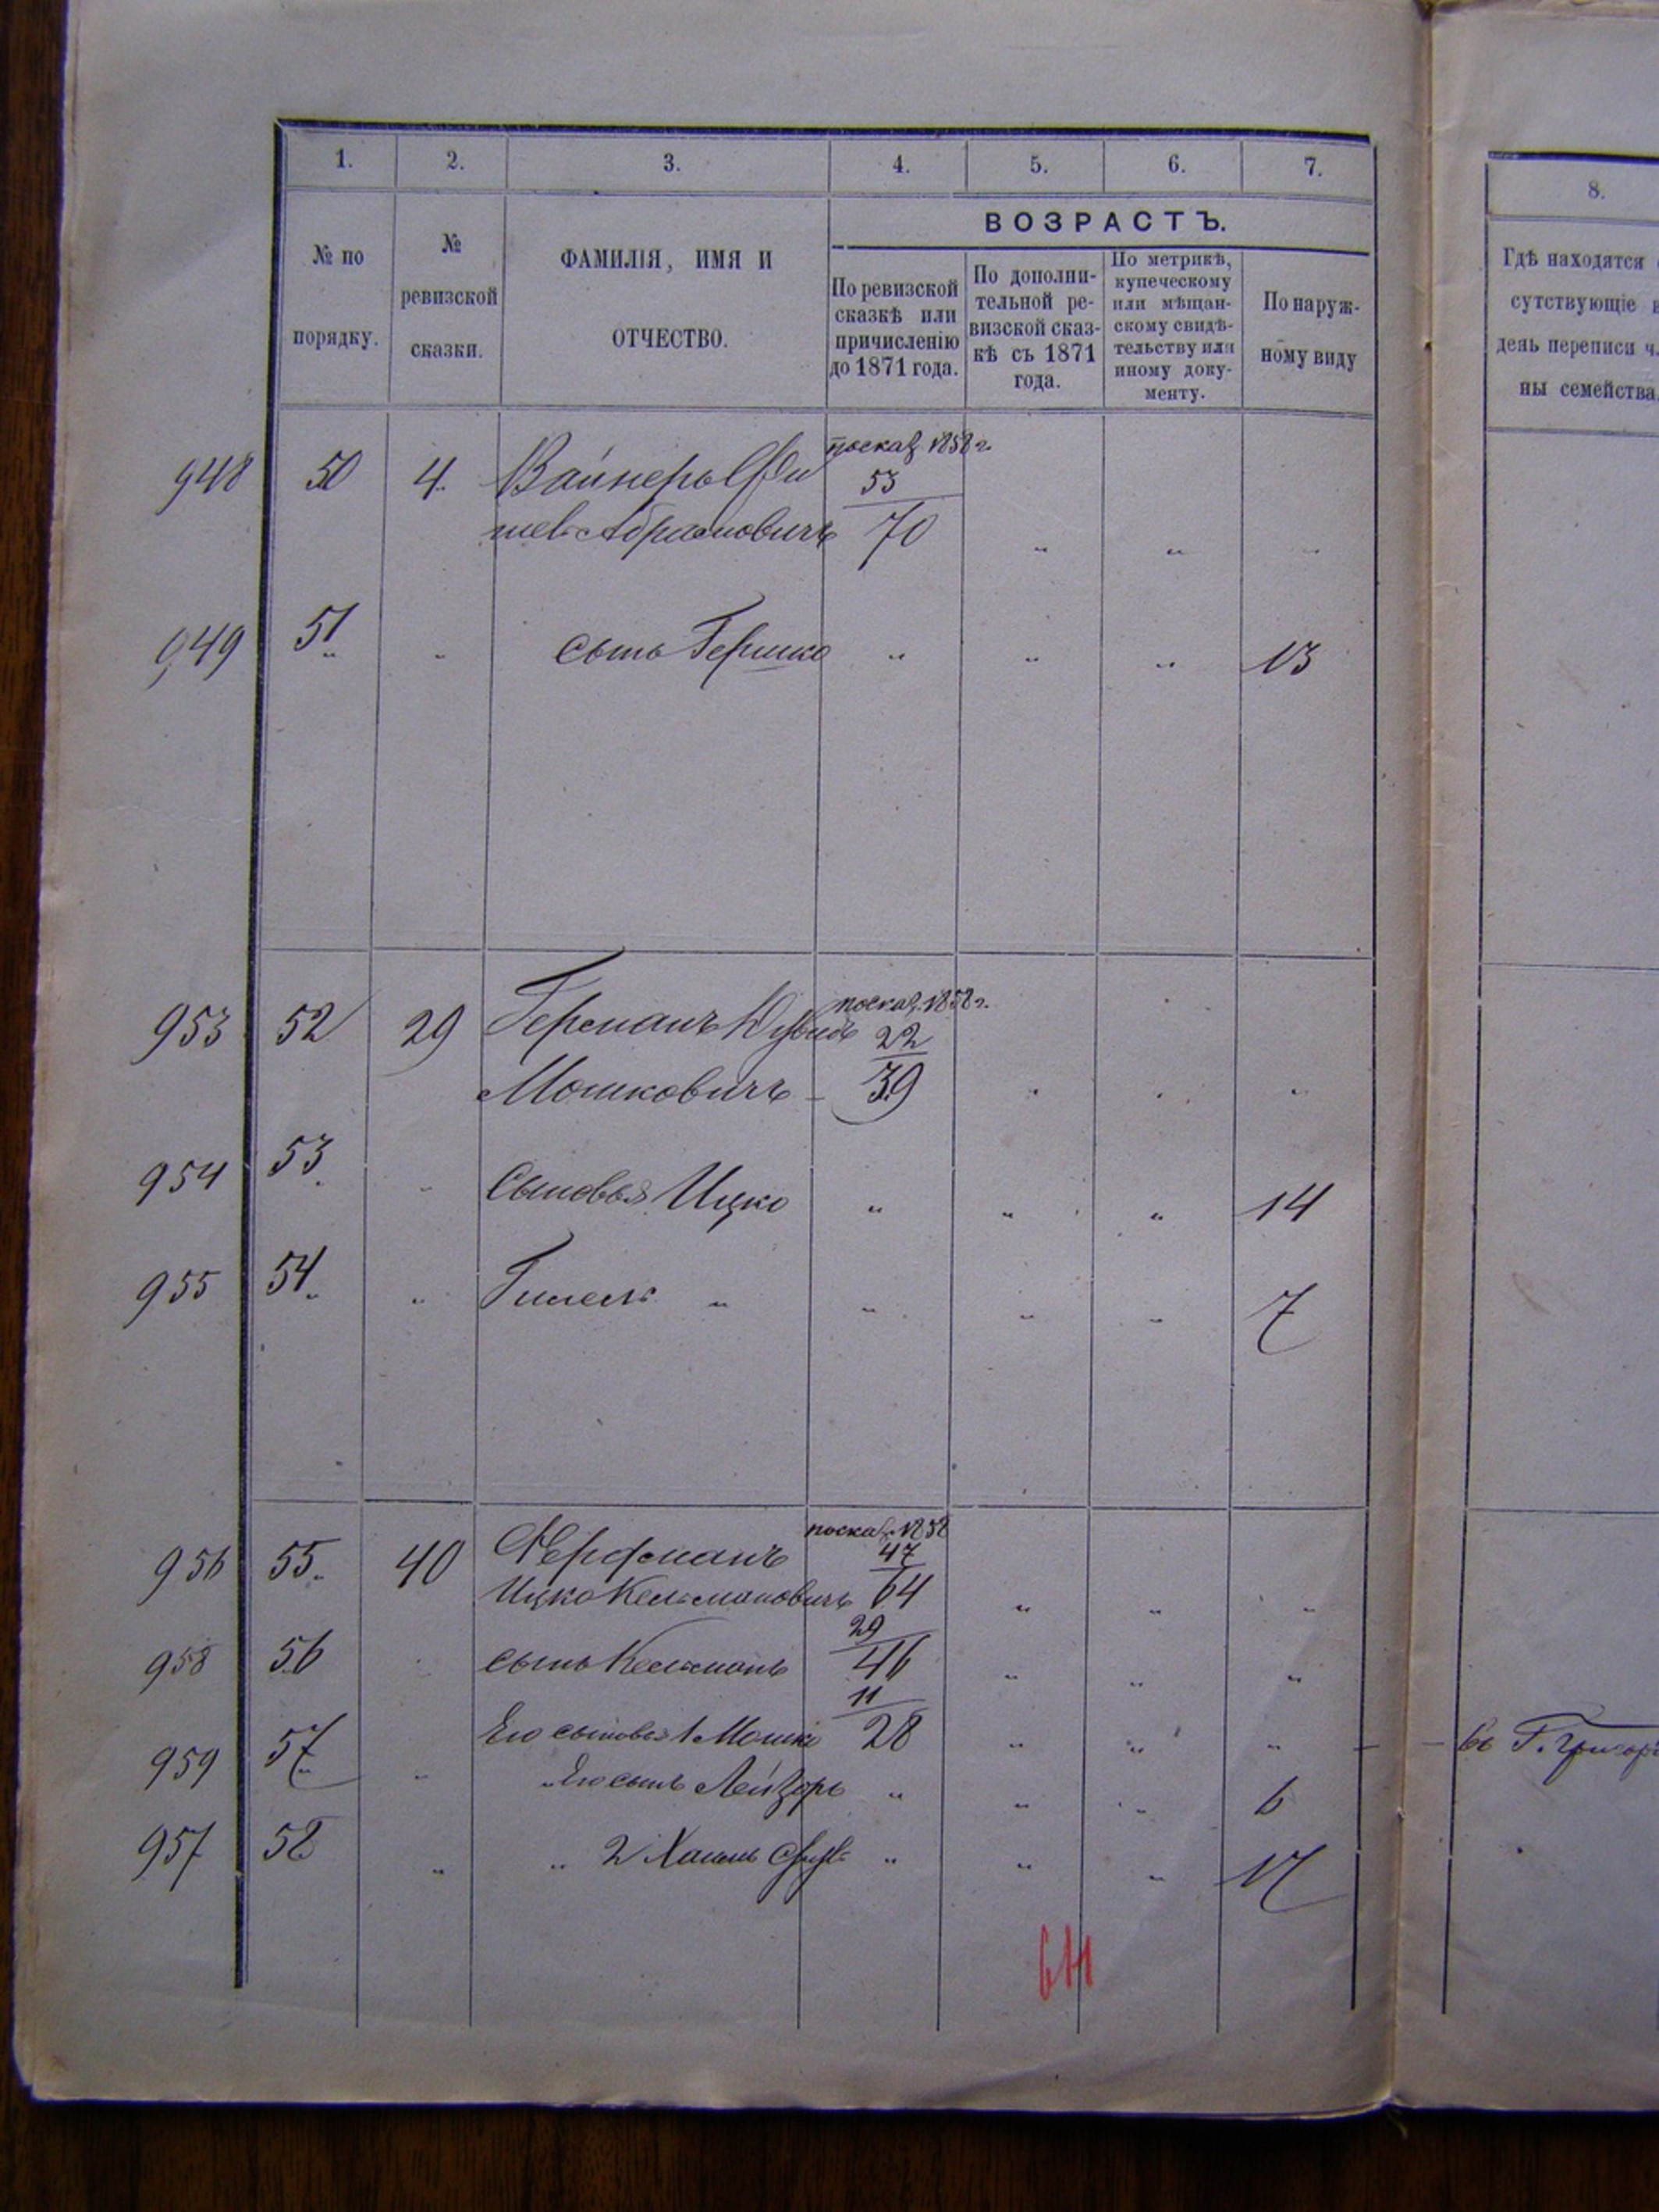 1. 2. 3. 4. 5. 6. 7.
ВОЗРАСТЪ.
№ по
порядку.
№
ревизской
сказки.
ФАМИЛІЯ, ИМЯ И
ОТЧЕСТВО.
По ревизской
сказкѣ или
причисленію
до 1871 года.
По дополни-
тельной ре-
визской сказ-
кѣ съ 1871
года.
По метрикѣ,
купеческому
или мѣщан-
скому свидѣ-
тельству или
иному доку-
менту.
По наруж-
ному виду
8.
Гдѣ находятся
сутствующіе в
день переписи ч
ны семейства
по сказ. 1858 г.
948 50 4. Вайнеръ Фи 53
шель Абрамовичъ 70 " " "
949 51 " сынъ Гершко " " " 13
по сказ. 1858 г.
953 52 29 Германъ 22
Мошковичъ - 39 " " "
954 53 " Сыновья Ицко " " " 14
955 54 " Гилель " " " " 7
по сказ. 1858
956 55 40 47
Ицко Кельмановичъ 64 " " "
29
958 56 " сынъ Кельманъ 46 " " "
11
959 57 " Его сыновья 1 Мошко 28 " " " - - въ Г. Григор
" Его сынъ Лейзоръ " " " 6
957 58 " " 2 " " " 17
611